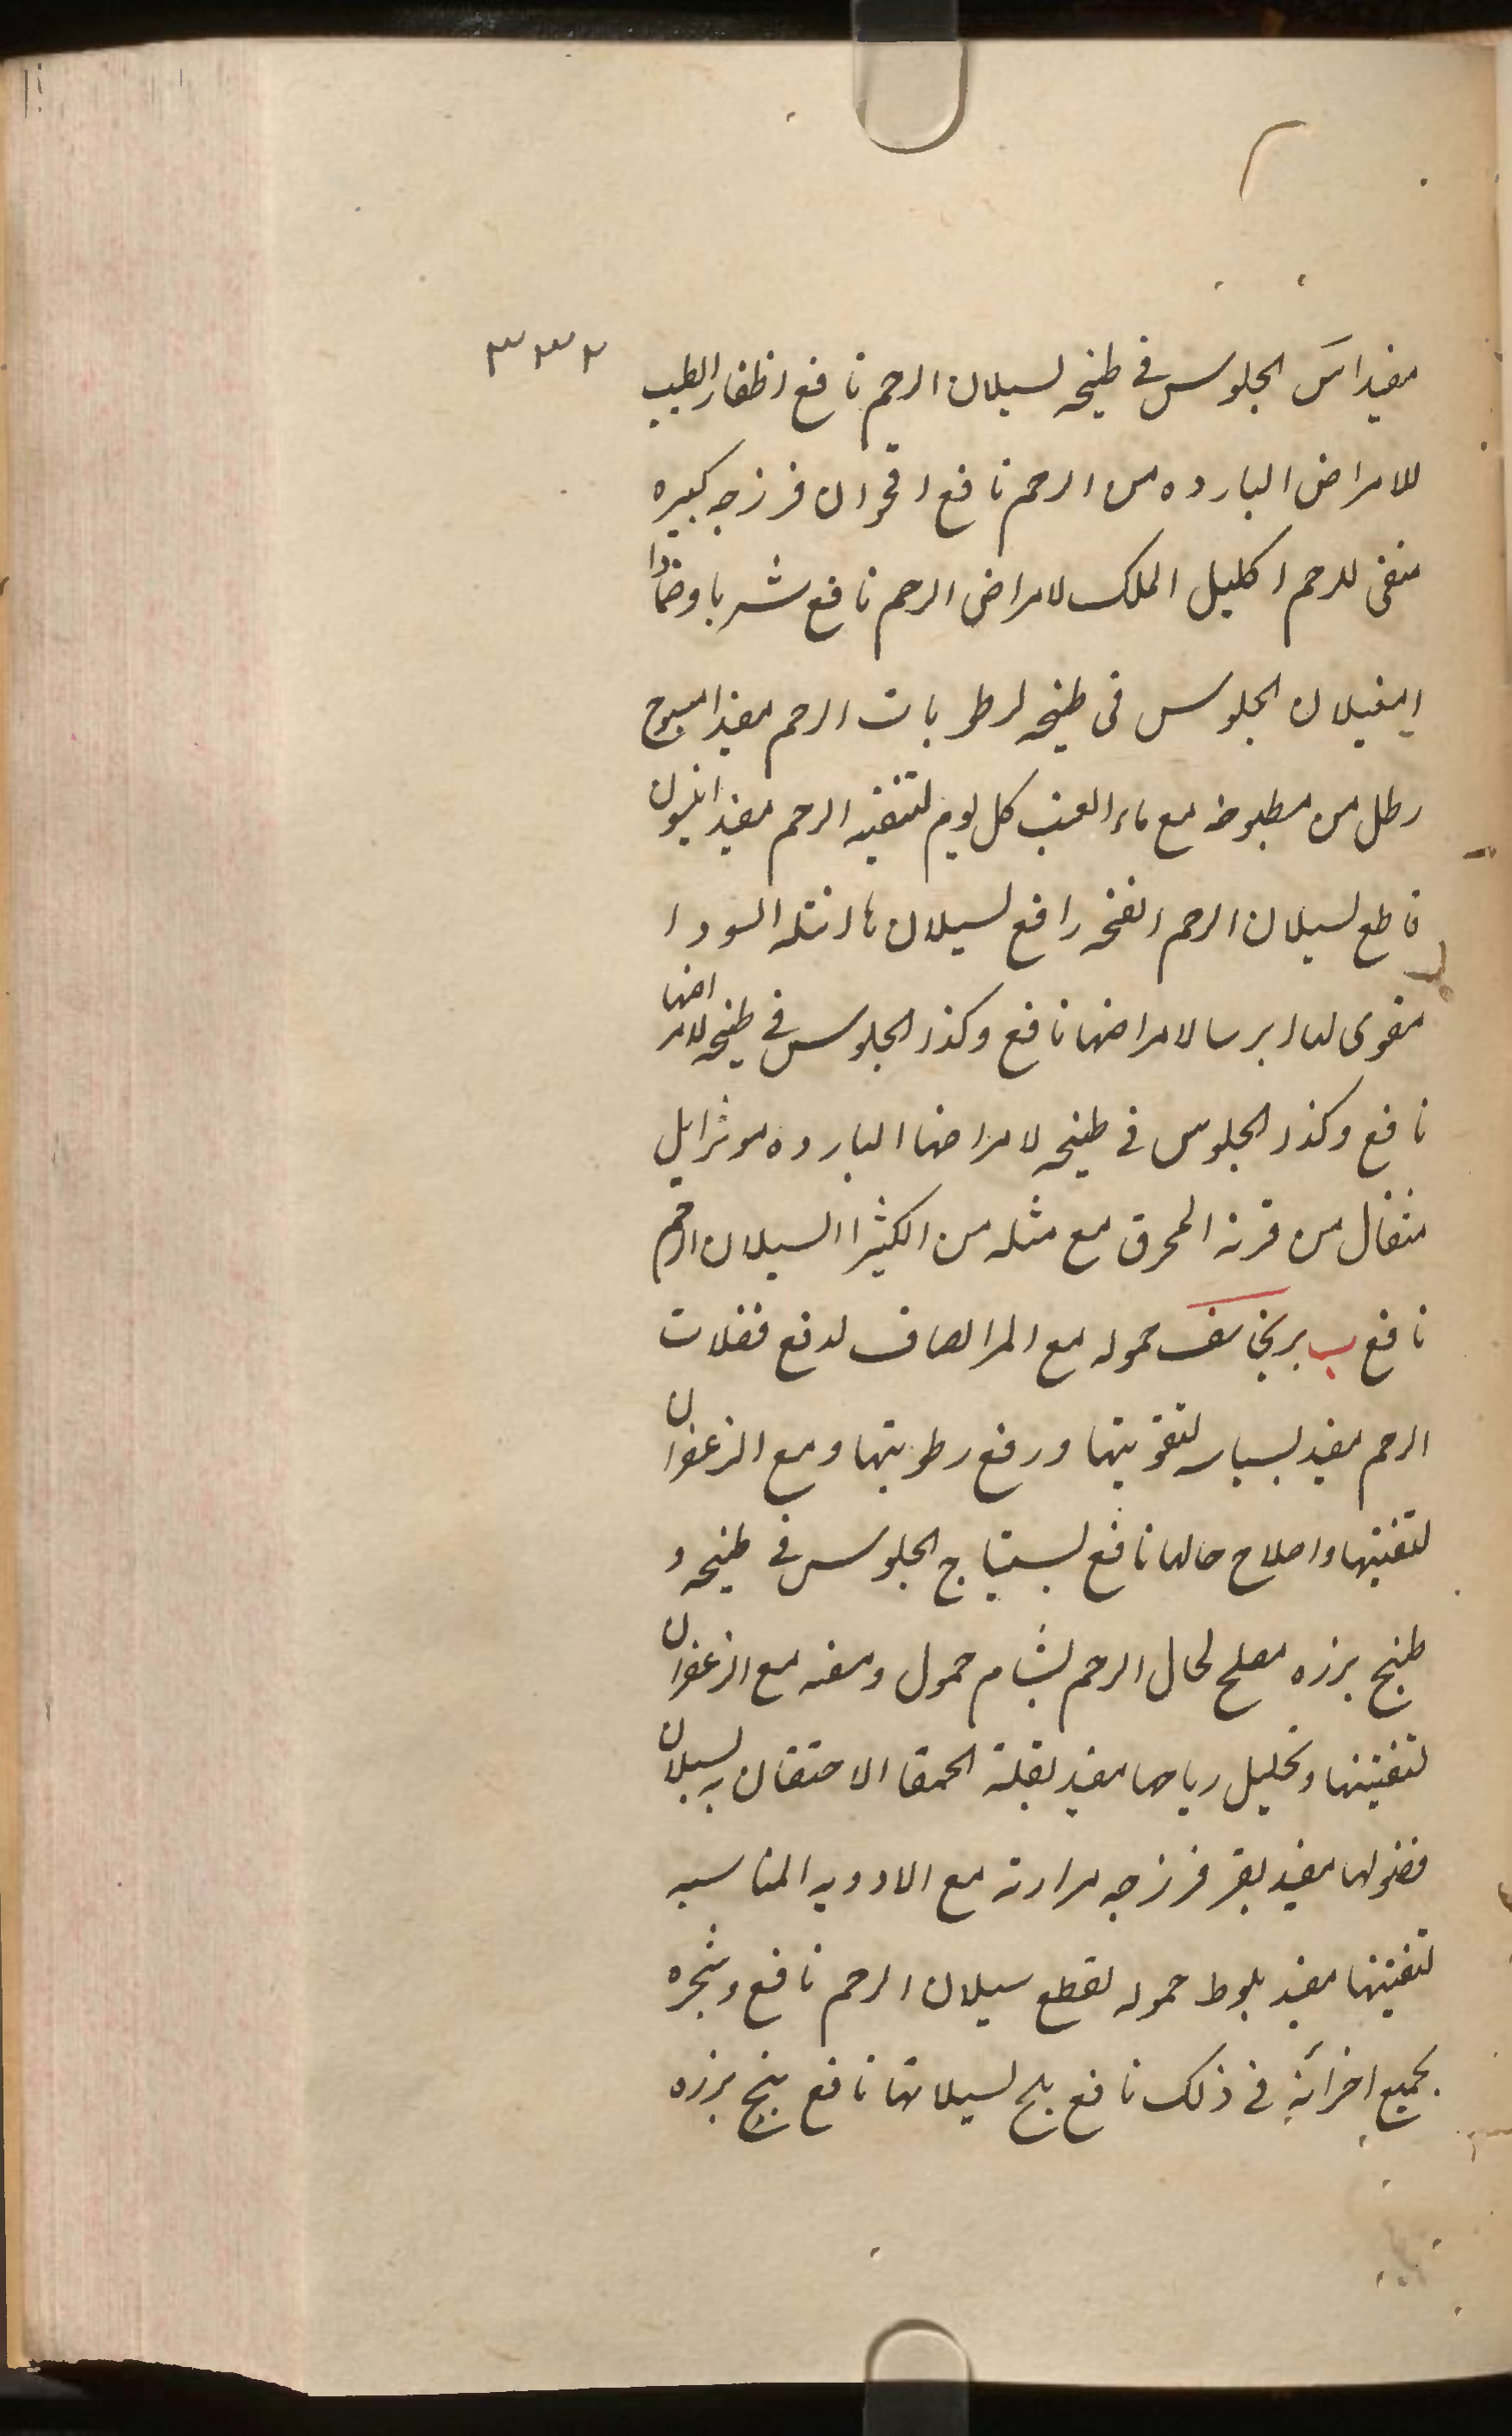 ٣٣٢
مفید اس الجلوس فی طبیخه لسیلان الرحم نافع اظفار الطیب
للامراض البارده من الرحم نافع اقحوان فرزجه کبیره
منقی للرحم اکلیل الملک لامراض الرحم نافع شربا وضمادا
امغیلان الجلوس فی طبیخه لرطوبات الرحم مفید
رطل من مطبوخه مع ماء العنب کل یوم لتنقیه الرحم مفید انیسون
قاطع لسیلان الرحم انفخه رافع لسیلان السودا
مقوی لها ایرسا لامراضها نافع وکذا الجلوس فی طبیخه لامراضها
نافع وکذا الجلوس فی طبیخه لامراضها البارده موثر ایل
مثقال من قرنه المحرق مع مثله من الکثیرا لسیلان الرحم
نافع ب برنجاسف حموله مع المر الصاف لدفع فضلات
الرحم مفید بسباسه لتقویتها ورفع رطوبتها ومع الزعفران
لتنقیتها واصلاح حالها نافع بستیاج الجلوس فی طبیخه و
طبیخ بزره مصلح لحال الرحم بشام حمول وسفه مع الزعفران
لتنقیتها وتحلیل ریاحها مفید بقلة الحمقا الاحتقان به لسیلان
فضولها مفید بقر فرزجه مرارته مع الادویه المناسبه
لتنقیتها مفید بلوط حموله لقطع سیلان الرحم نافع وشجره
بجمیع اجزائه فی ذلک نافع بلح لسیلانها نافع بنج بزره